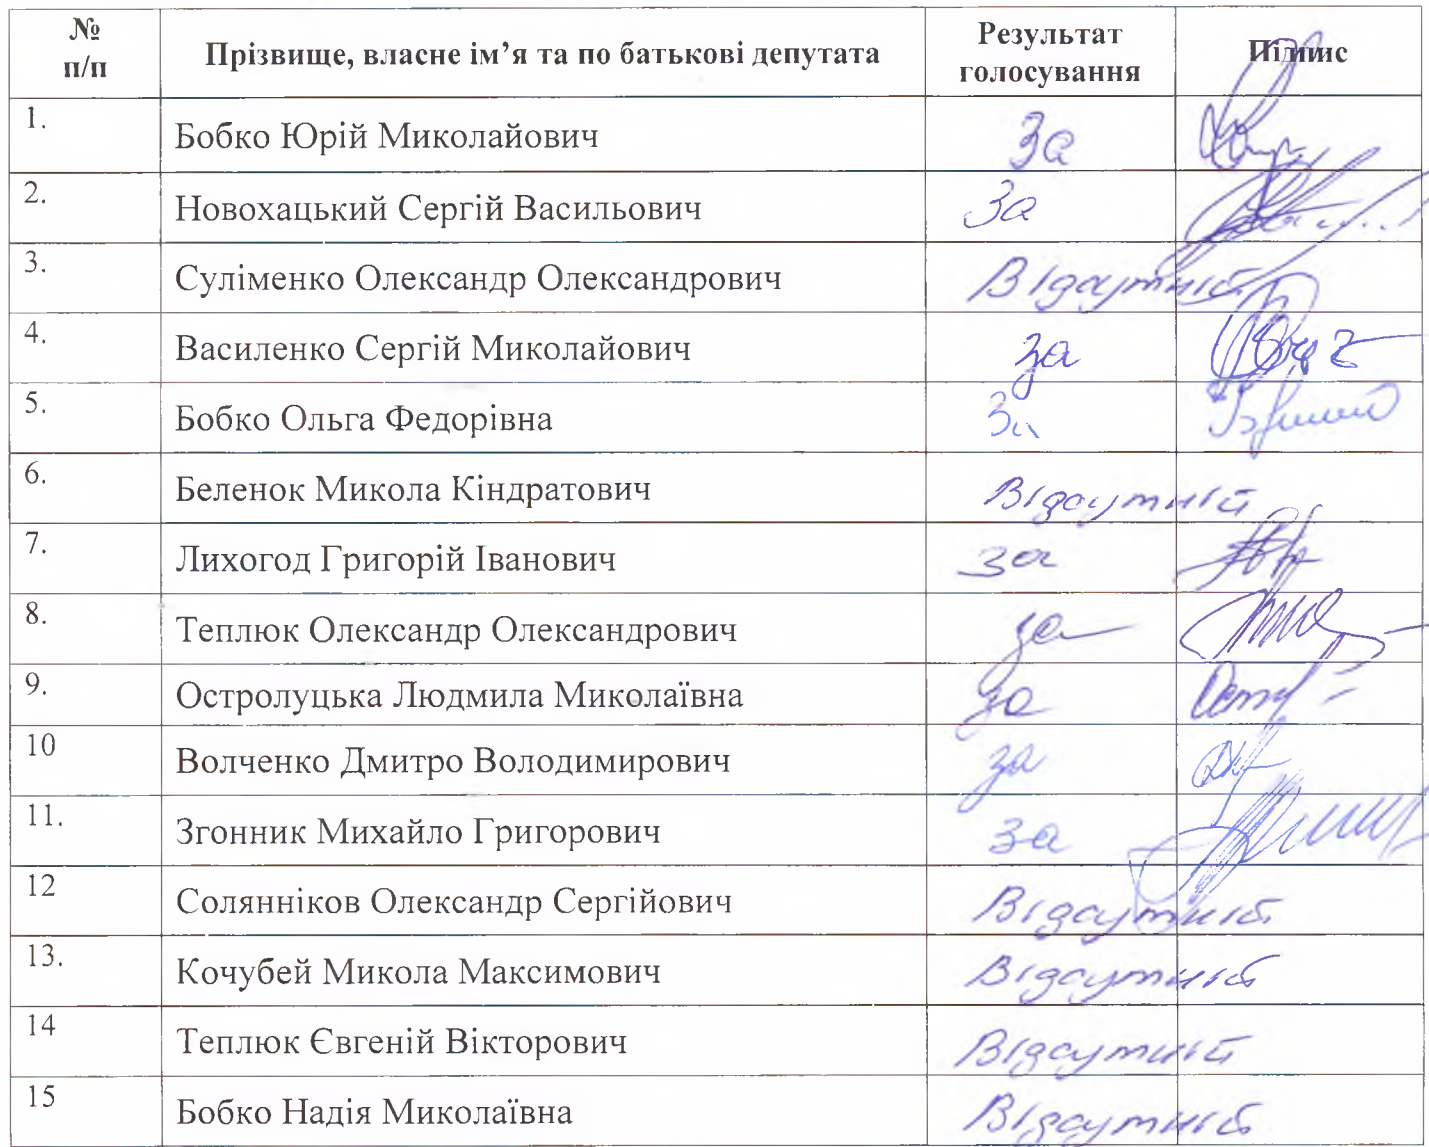 № п/п Прізвище, власне ім’я та по батькові депутата Результат голосування Підпис
1. Бобко Юрій Миколайович За
2. Новохацький Сергій Васильович За
3. Суліменко Олександр Олександрович Відсутній
4. Василенко Сергій Миколайович за
5. Бобко Ольга Федорівна За
6. Беленок Микола Кіндратович Відсутній
7. Лихогод Григорій Іванович за
8. Теплюк Олександр Олександрович за
9. Остролуцька Людмила Миколаївна за
10 Волченко Дмитро Володимирович за
11. Згонник Михайло Григорович за
12 Солянніков Олександр Сергійович Відсутній
13. Кочубей Микола Максимович Відсутній
14 Теплюк Євгеній Вікторович Відсутній
15 Бобко Надія Миколаївна Відсутній